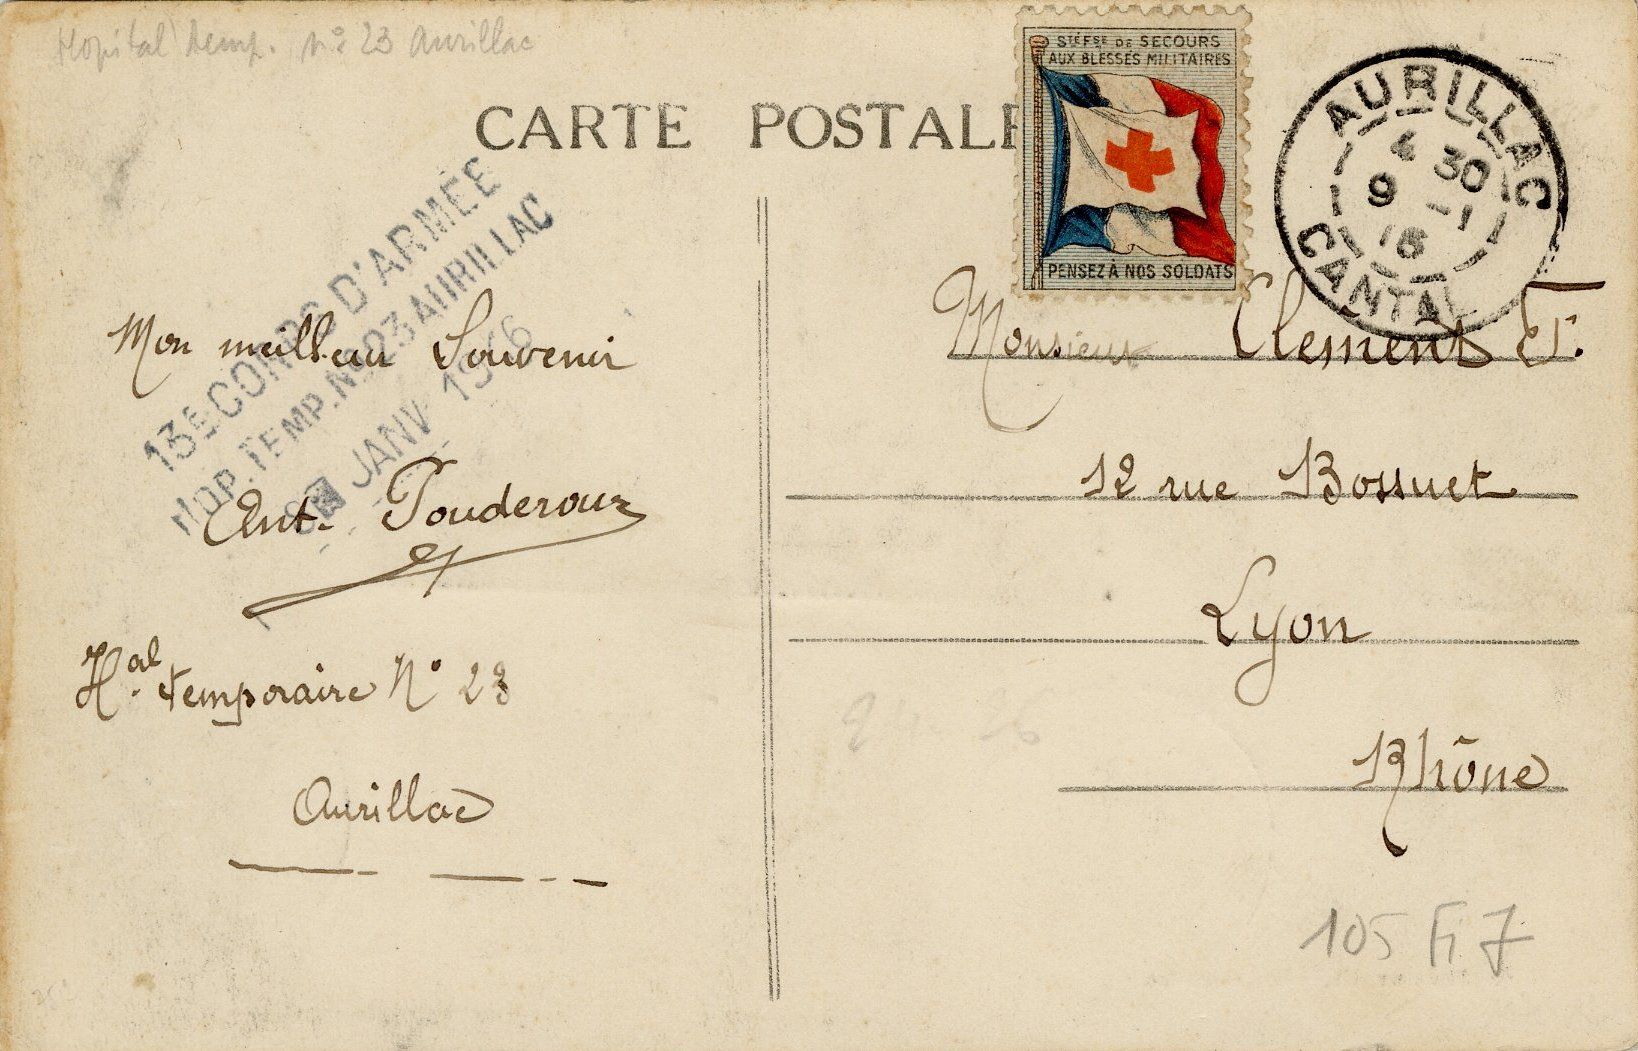 Hopital temp. n° 23 Aurillac
CARTE POSTALE
STÉ FSE DE SECOURS
AUX BLESSÉS MILITAIRES
PENSEZ À NOS SOLDATS
AURILLAC
4 30
9 -1
16
CANTAL
13E CORPS D'ARMÉE
HOP. TEMP. No 23 AURILLAC
8 JANV 1916
Mon meilleur Souvenir
Ant. Pouderoux
Hal. temporaire N° 23
Aurillac
Monsieur Clement F.
12 rue Bossuet
Lyon
Rhône
105 Fi 7